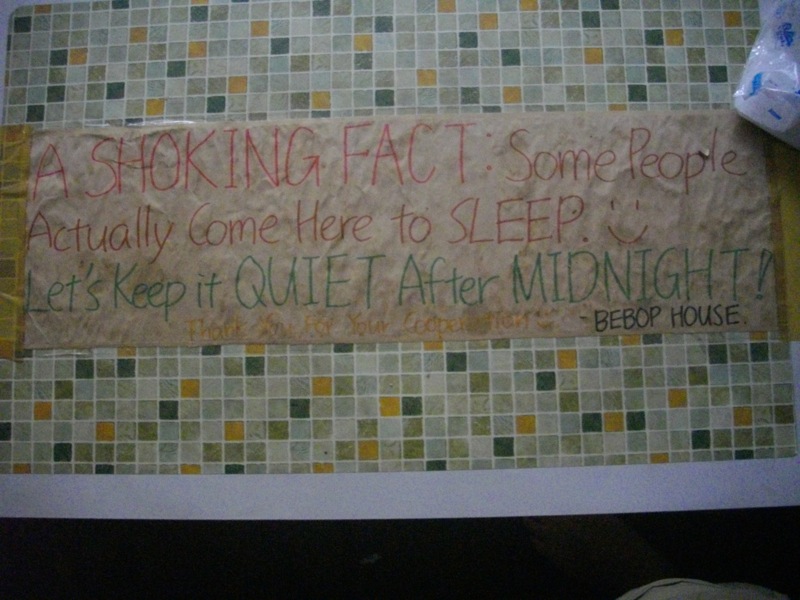 A SHOKING FACT: Some People
Actually Come Here to SLEEP. :)
Let's Keep it QUIET After MIDNIGHT!
Thank You For Your Cooperation
- BEBOP HOUSE.